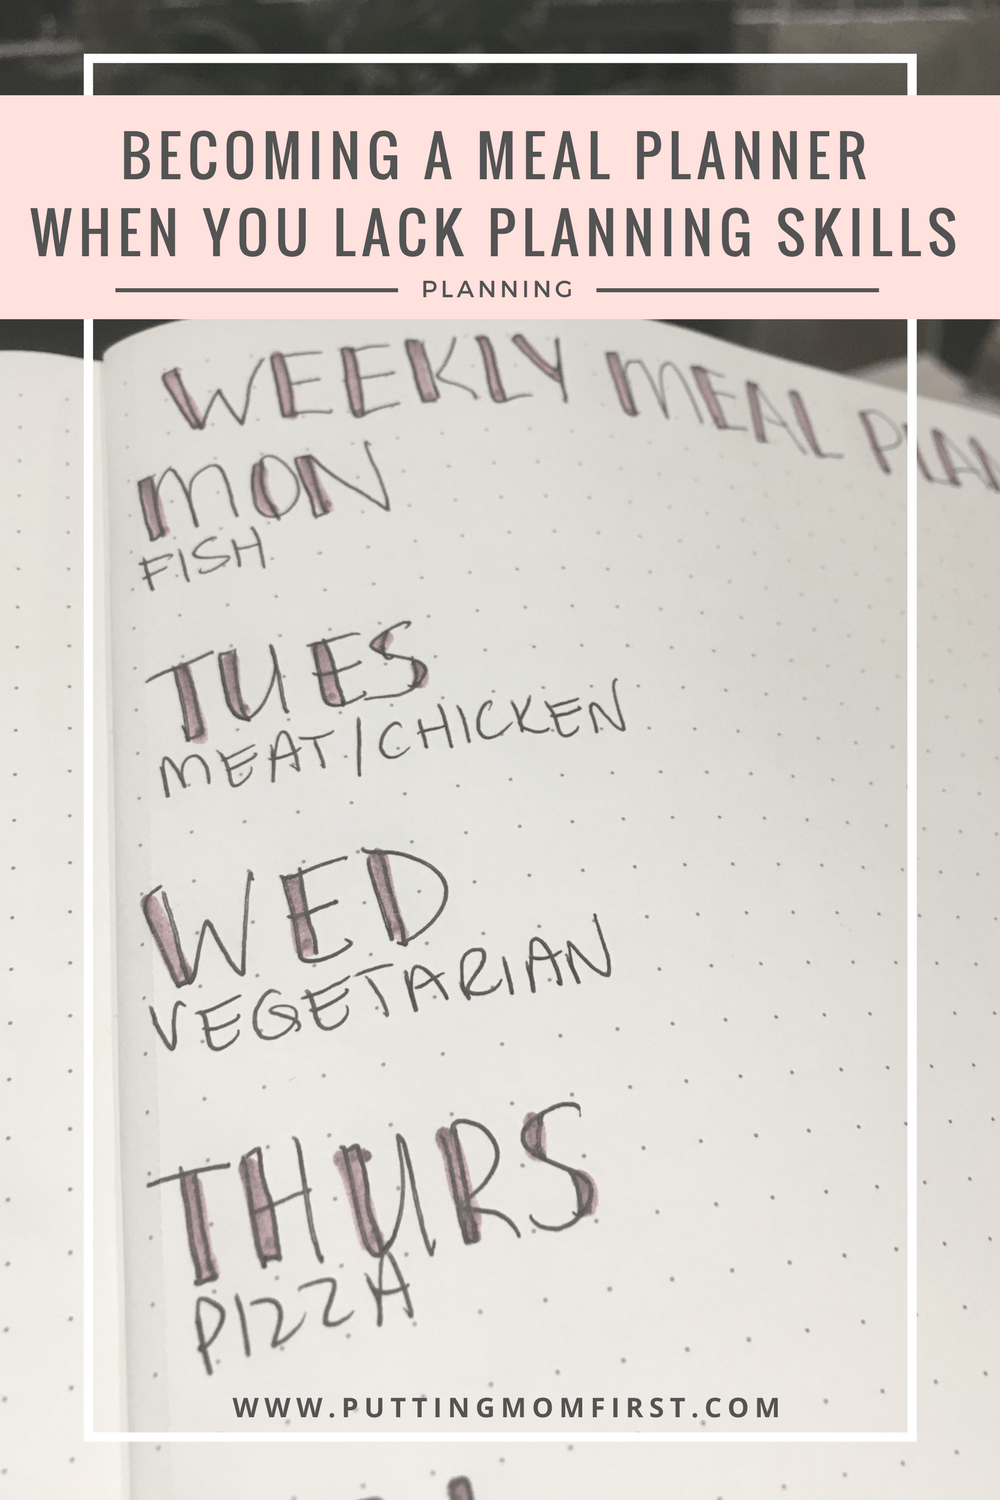 BECOMING A MEAL PLANNER
WHEN YOU LACK PLANNING SKILLS
PLANNING
WEEKLY MEAL PLAN
MON
FISH
TUES
MEAT/CHICKEN
WED
VEGETARIAN
THURS
PIZZA
WWW.PUTTINGMOMFIRST.COM